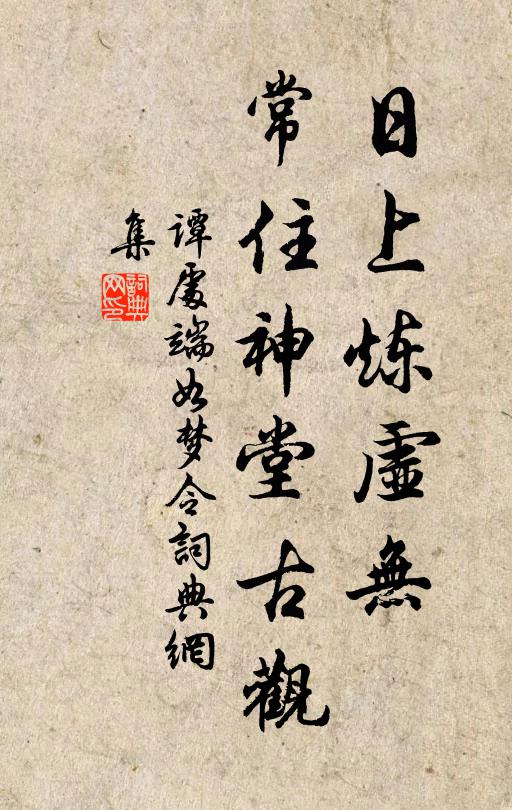 日上炼虚無
常住神堂古觀
谭處端如梦令詞典網
集
詞典
网印